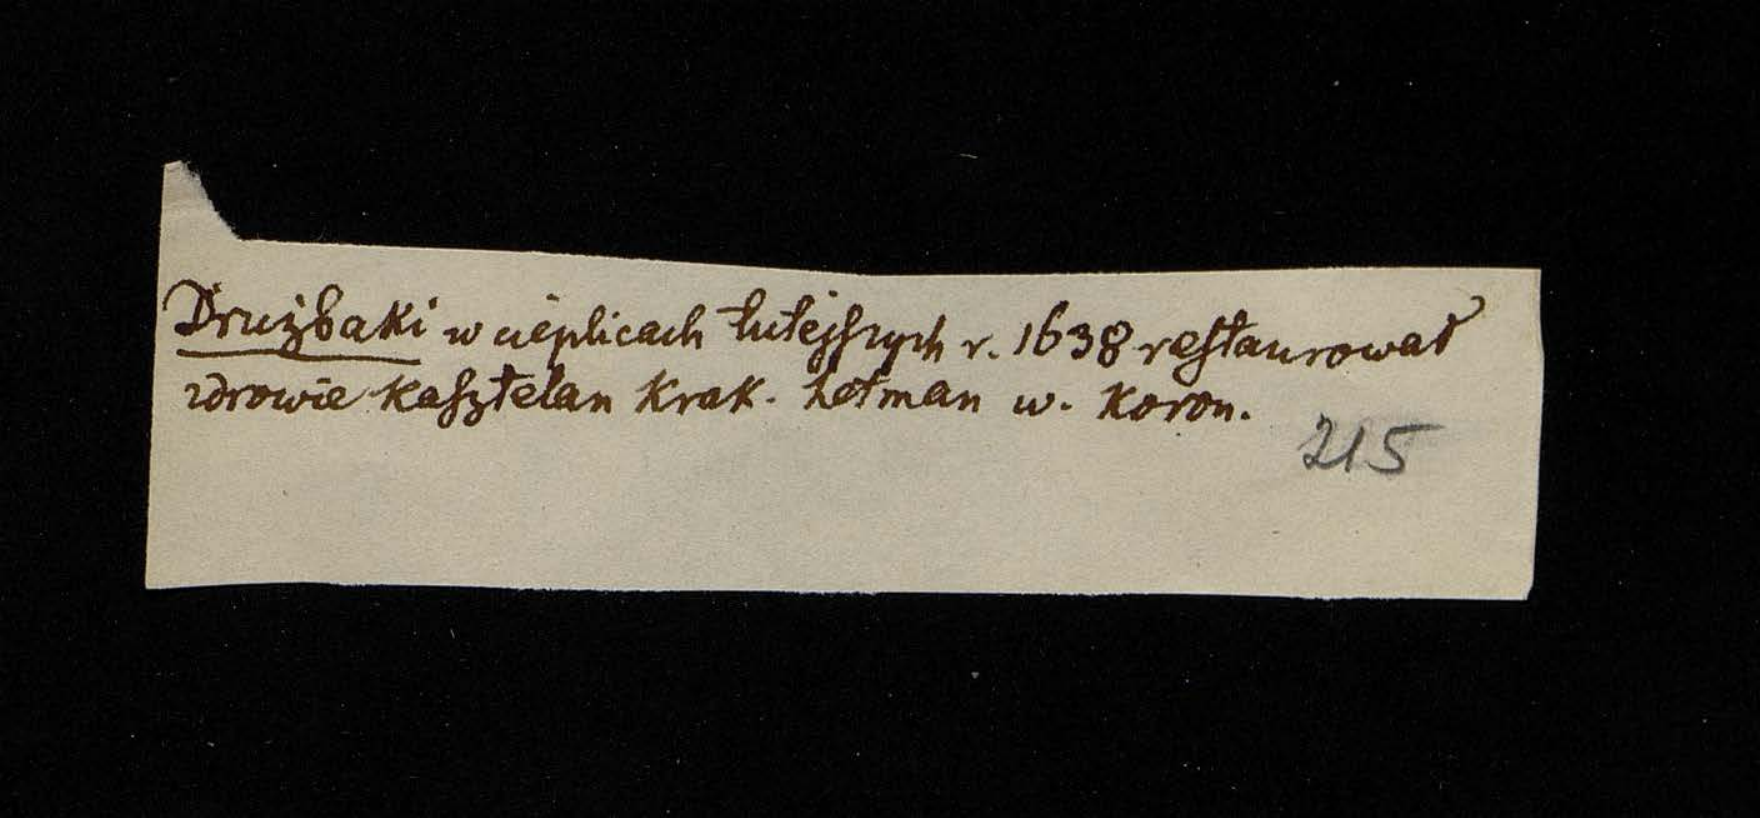 Drużbaki w cieplicach tutejszych r. 1638 restaurował
zdrowie kasztelan Krak. hetman w. Koron.
215